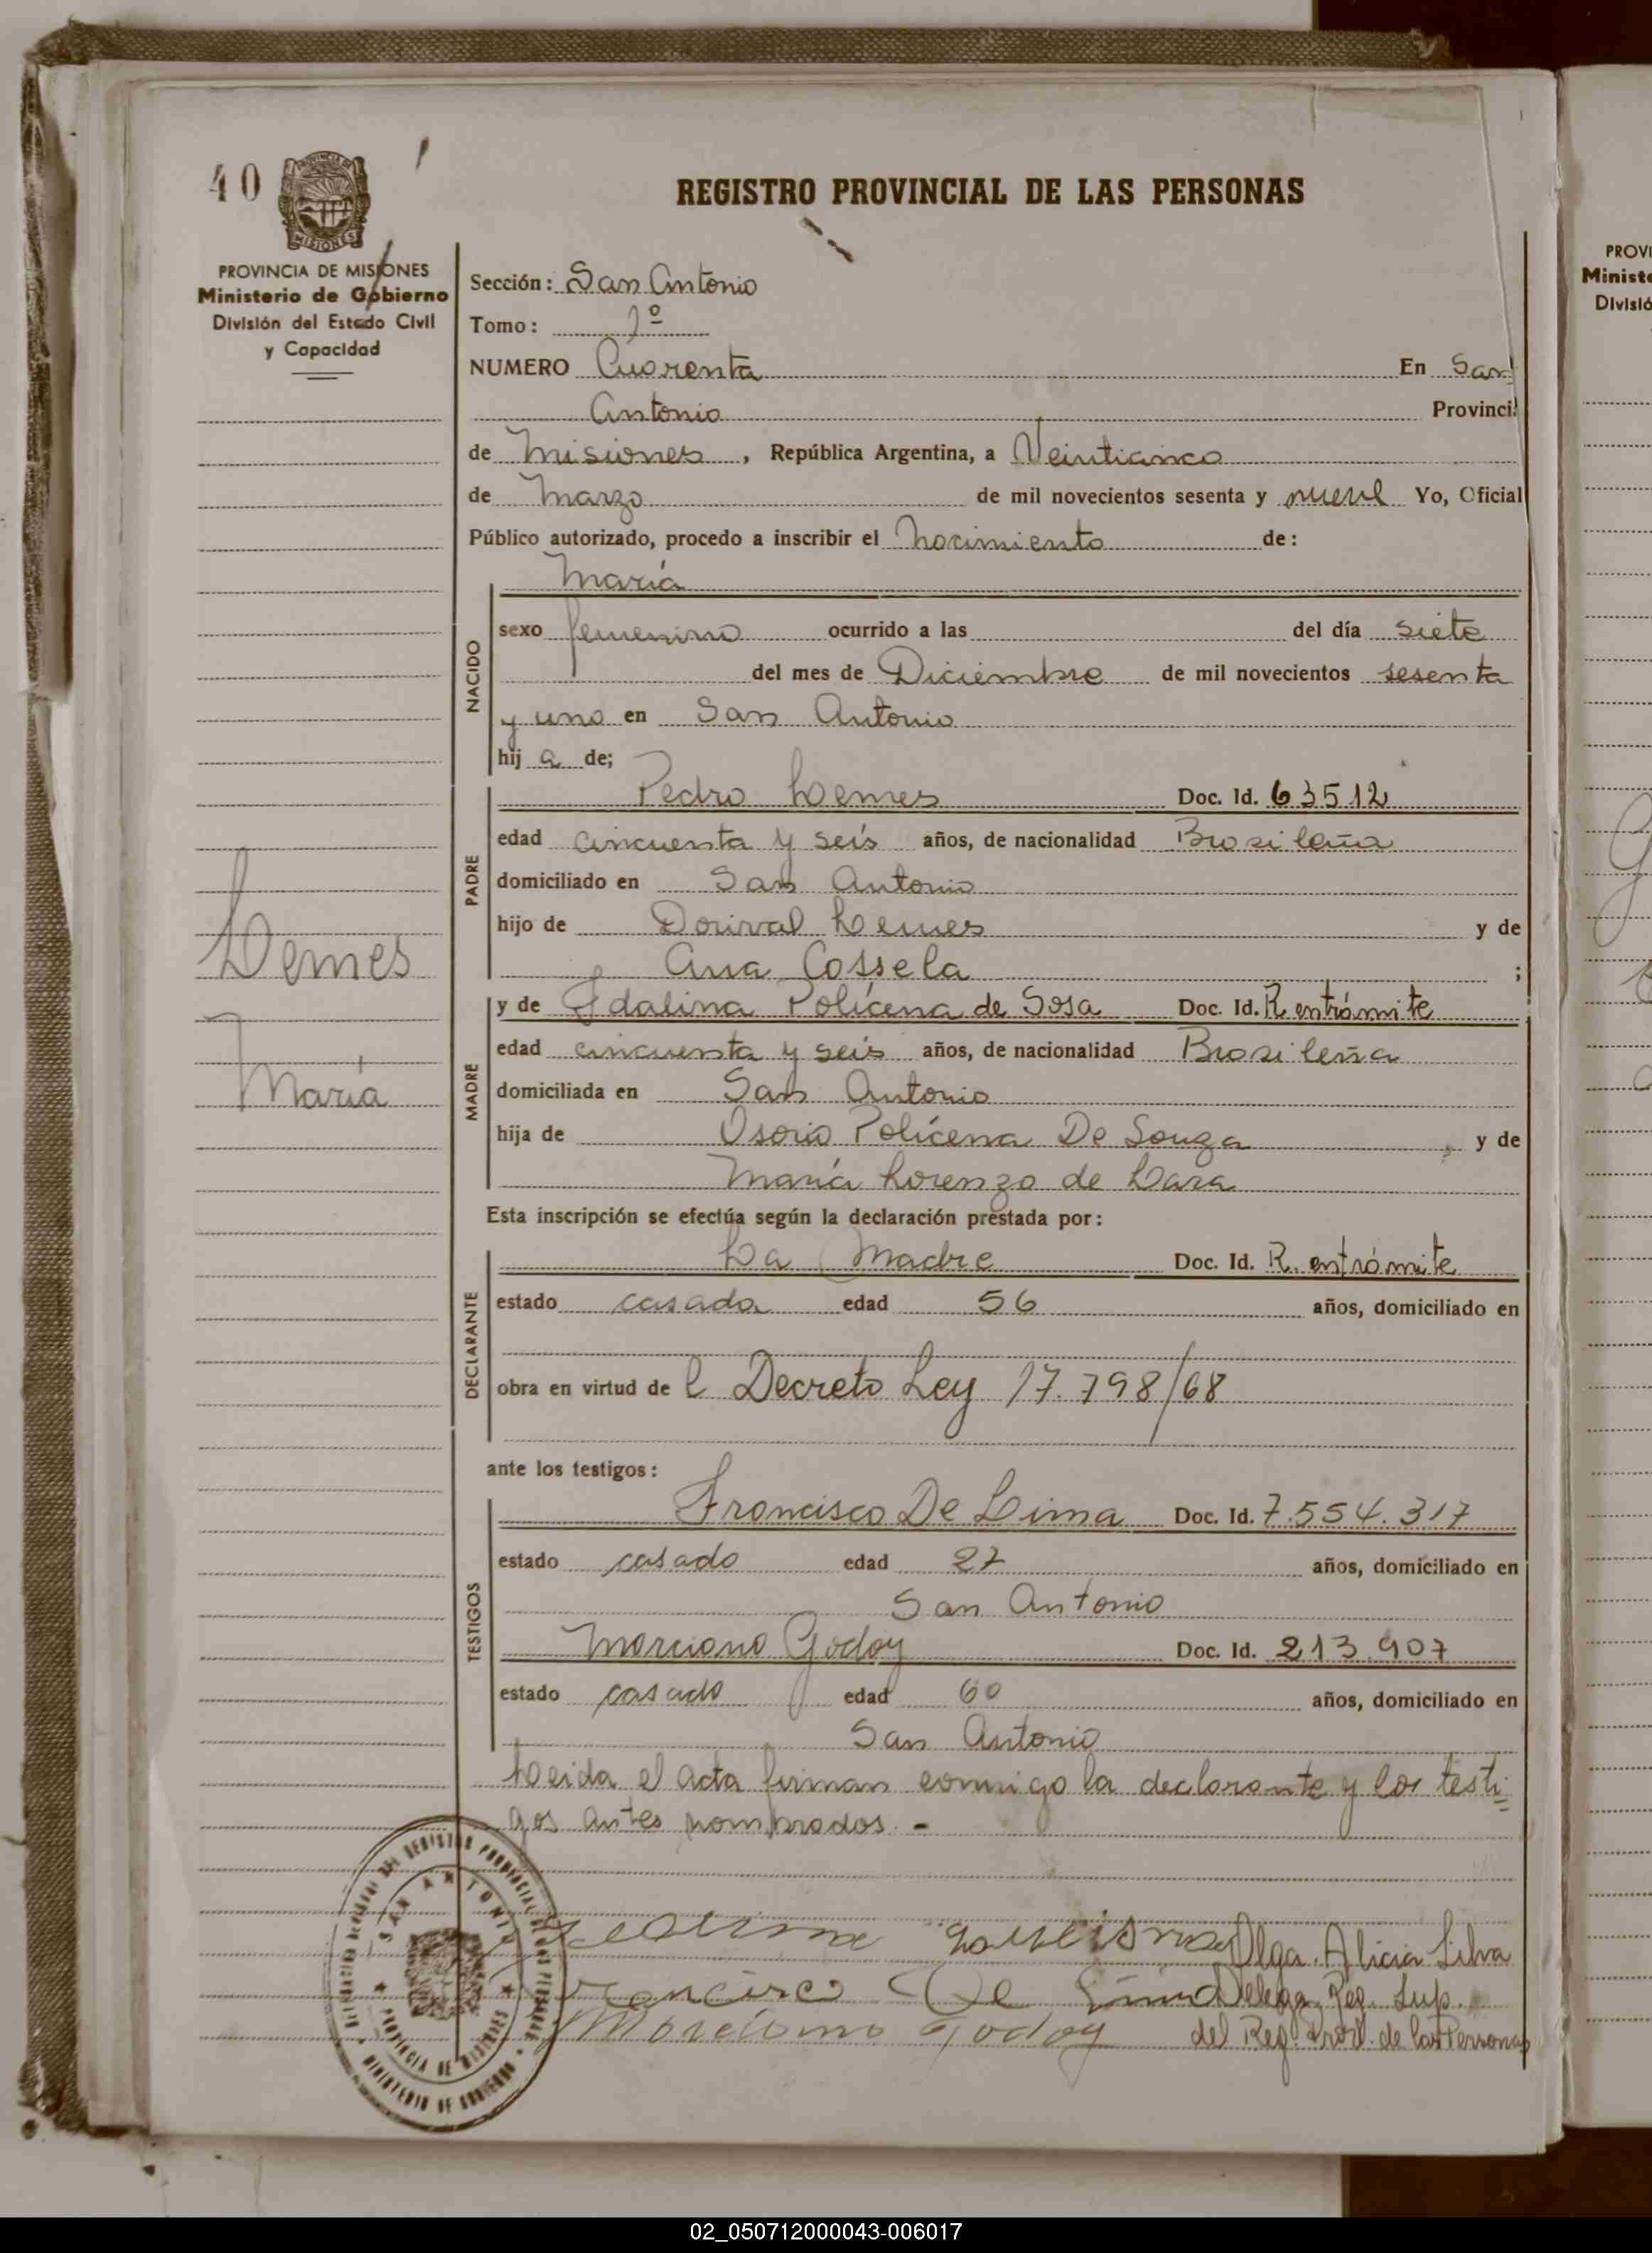 40
REGISTRO PROVINCIAL DE LAS PERSONAS
PROVINCIA DE MISIONES
Ministerio de Gobierno
División del Estado Civil
y Capacidad
Sección: San Antonio
Tomo: 1º
NUMERO Cuarenta En San
Antonio Provinci
de Misiones, República Argentina, a Veinticinco
de Marzo de mil novecientos sesenta y nueve Yo, Oficial
Público autorizado, procedo a inscribir el Nacimiento de:
María
NACIDO
sexo femenino ocurrido a las del día siete
del mes de Diciembre de mil novecientos sesenta
y uno en San Antonio
hija de;
PADRE
Pedro Lemes Doc. Id. 63512
edad cincuenta y seis años, de nacionalidad Brasileña
domiciliado en San Antonio
hijo de Dorival Lemes y de
Ana Cossela ;
Lemes
María
MADRE
y de Idalina Polícena de Sosa Doc. Id. R. entrámite
edad cincuenta y seis años, de nacionalidad Brasileña
domiciliada en San Antonio
hija de Osorio Polícena De Souza y de
María Lorenzo de Lara
Esta inscripción se efectúa según la declaración prestada por:
DECLARANTE
La Madre Doc. Id. R. entrámite
estado casada edad 56 años, domiciliado en
obra en virtud de l Decreto Ley 17.798/68
ante los testigos:
TESTIGOS
Francisco De Lima Doc. Id. 7.554.317
estado casado edad 27 años, domiciliado en
San Antonio
Marciano Godoy Doc. Id. 213.907
estado casado edad 60 años, domiciliado en
San Antonio
Leida el acta firman conmigo la declarante y los testi-
gos antes nombrados. -
Olga Alicia Silva
Francisco De Lima Delega. Reg. Sup.
Marciano Godoy del Reg. Prov. de las Personas
SAN ANTONIO
PROVINCIA DE MISIONES
MINISTERIO DE GOBIERNO
PROVI
Ministe
Divisió
02_050712000043-006017